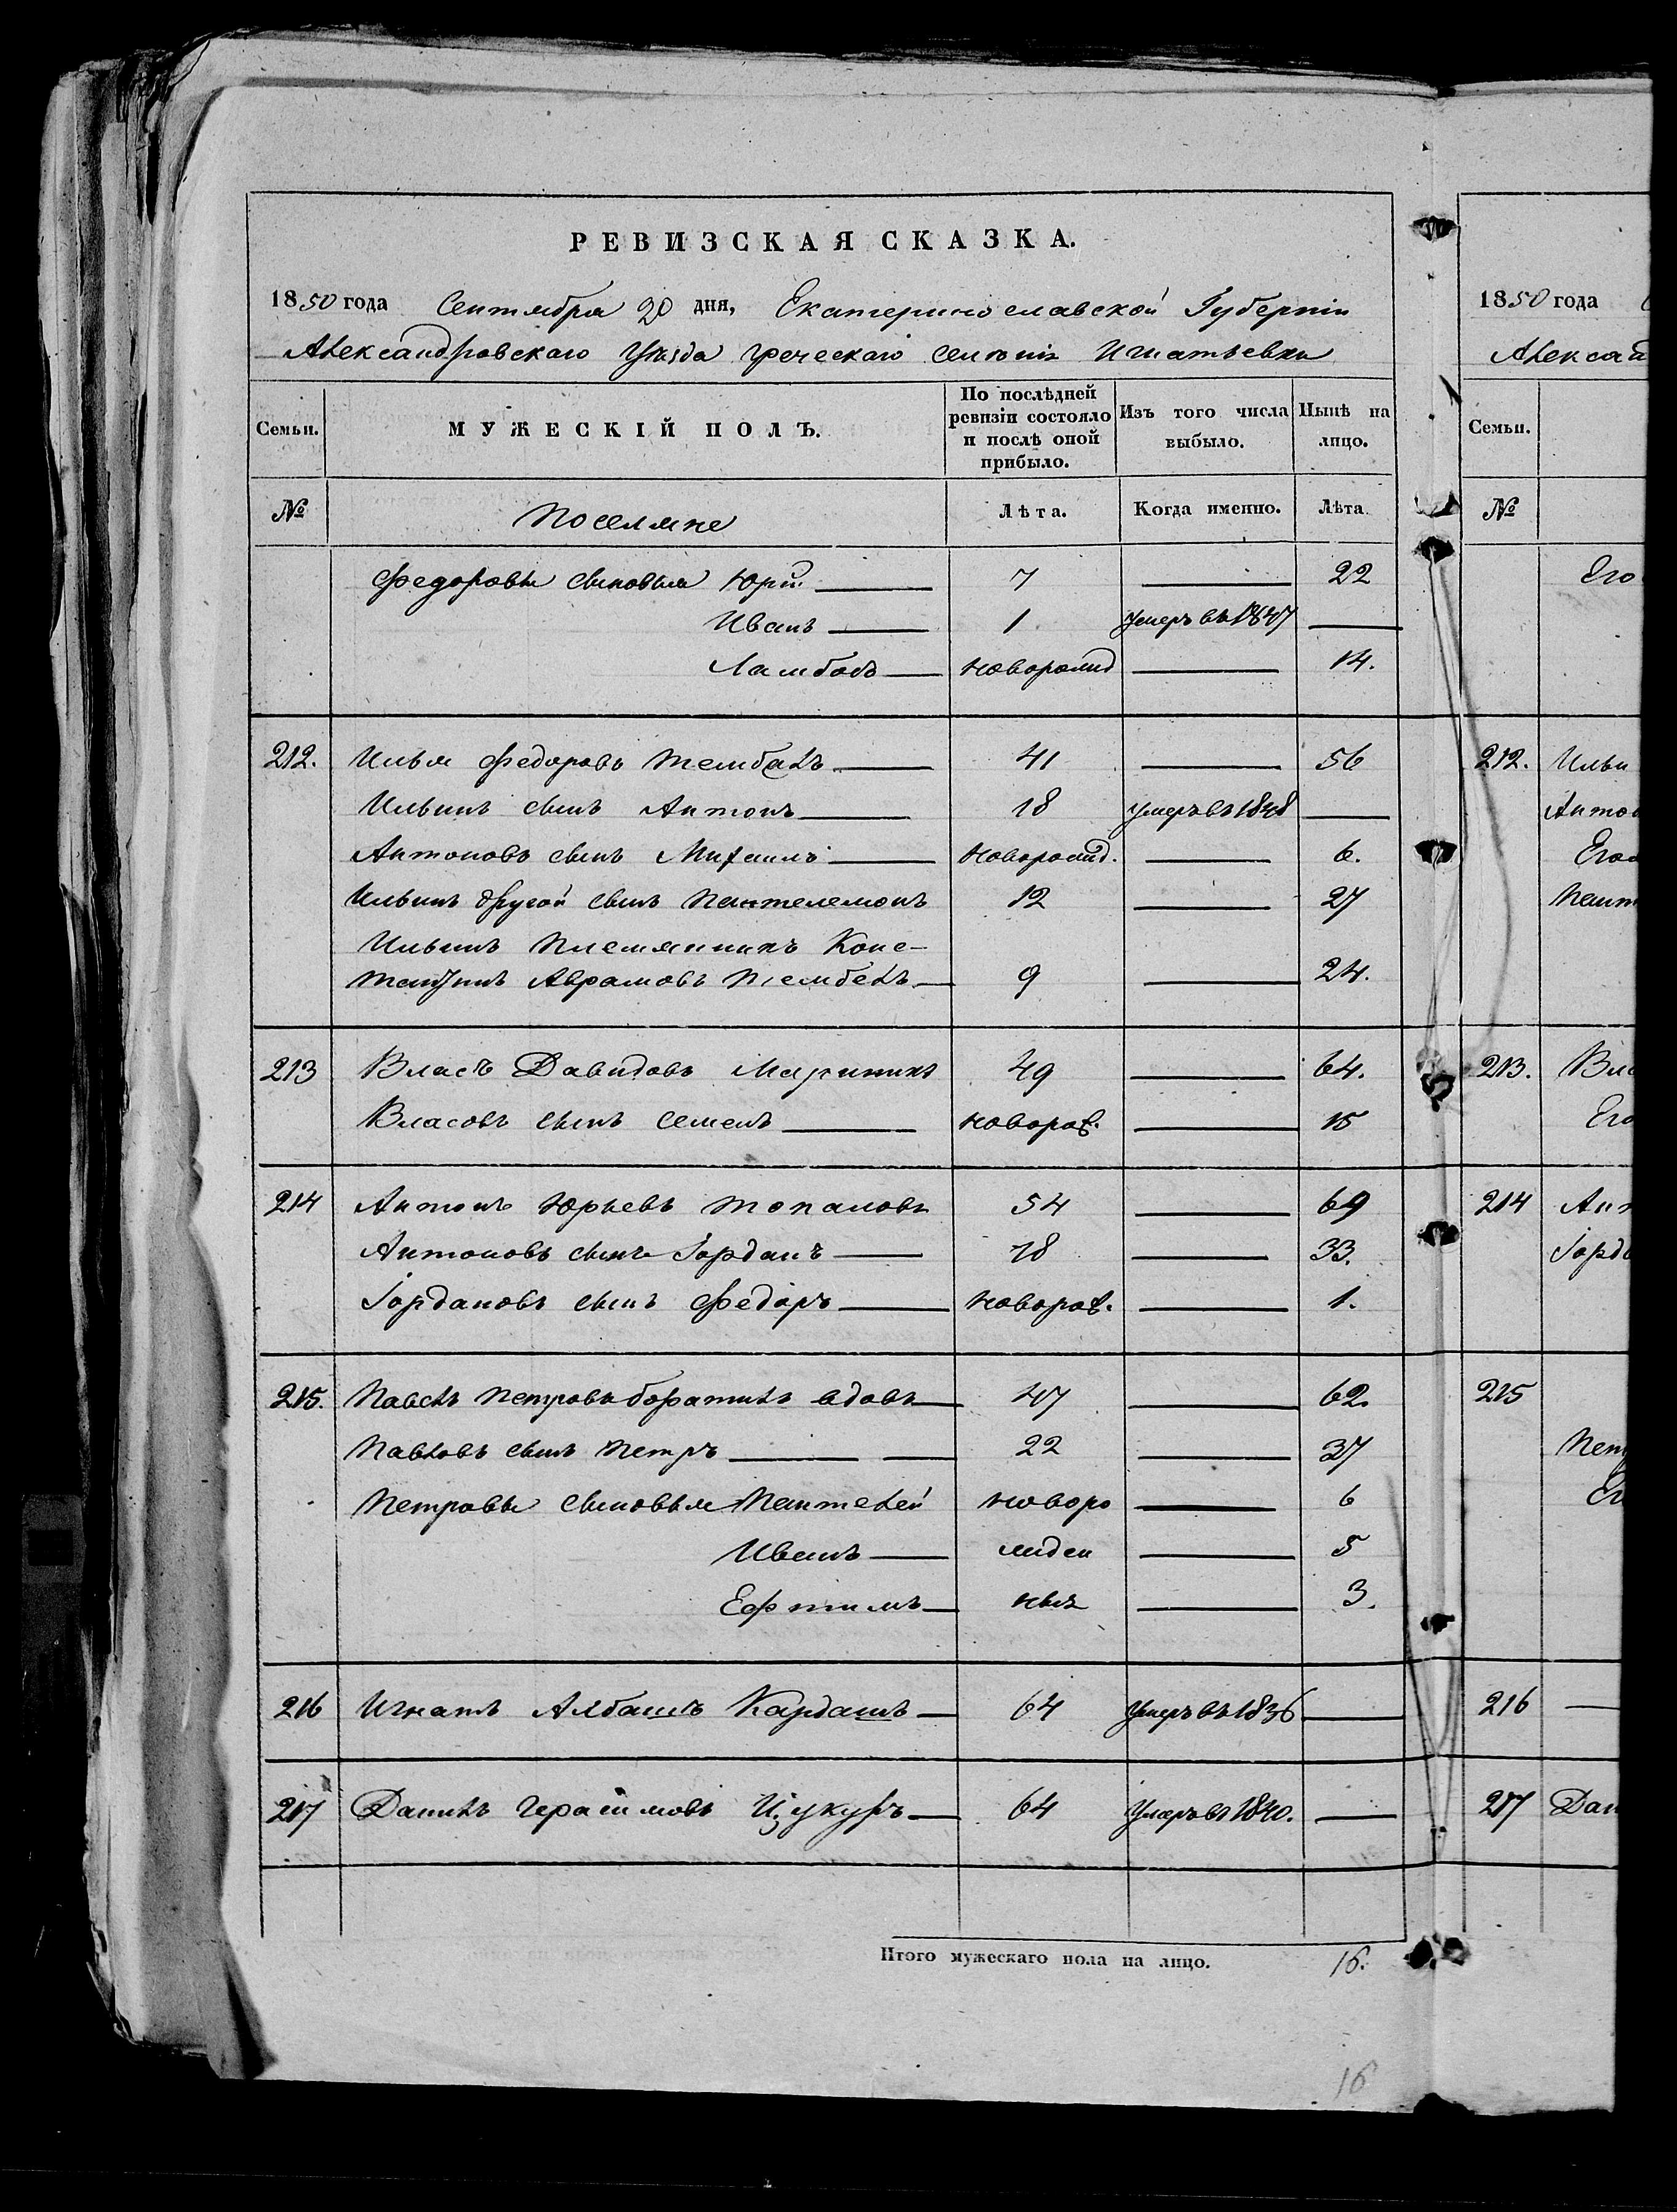 РЕВИЗСКАЯ СКАЗКА.
1850 года Сентября 20 дня, Екатеринославской Губерніи
Александровскаго Уѣзда греческаго селенія Игнатьевки
Семьи. МУЖЕСКІЙ ПОЛЪ. По послѣдней ревизіи состояло и послѣ оной прибыло. Изъ того числа выбыло. Нынѣ на лицо.
№ Поселяне Лѣта. Когда именно. Лѣта.
Федоровы сыновья Юрій 7 22
Иванъ 1 умеръ въ 1847
Ламбодъ новорожд 14.
212. Илья Федоровъ Тембелъ 41 56
Ильинъ сынъ Антонъ 18 умеръ въ 1848
Антоновъ сынъ Михаилъ новорожд. 6.
Ильинъ другой сынъ Пантелемонъ 12 27
Ильинъ племянникъ Конс-
тантинъ Аврамовъ Тембелъ 9 24.
213 Власъ Давидовъ 49 64.
Власовъ сынъ Семенъ новорож. 15
214 Антонъ Юрьевъ Топаловъ 54 69
Антоновъ сынъ Іорданъ 18 33.
Іордановъ сынъ Федоръ новорож. 1.
215. Павелъ Петровъ вдовъ 47 62.
Павловъ сынъ Петръ 22 37
Петровы сыновья Пантелей новоро 6
Иванъ жден 5
Ефтимъ ные 3.
216 Игнатъ Албашъ Кардашъ 64 умеръ въ 1836
217 Данилъ Герасимовъ Цукуръ 64 Умеръ въ 1840.
Итого мужескаго пола на лицо. 16.
16
1850 года
Алекса
Семьи.
№
Его
212. Ильи
Антон
Его
Пант
213. Вла
Его
214 Ант
Іорд
215
Пет
Ег
216
217 Дан